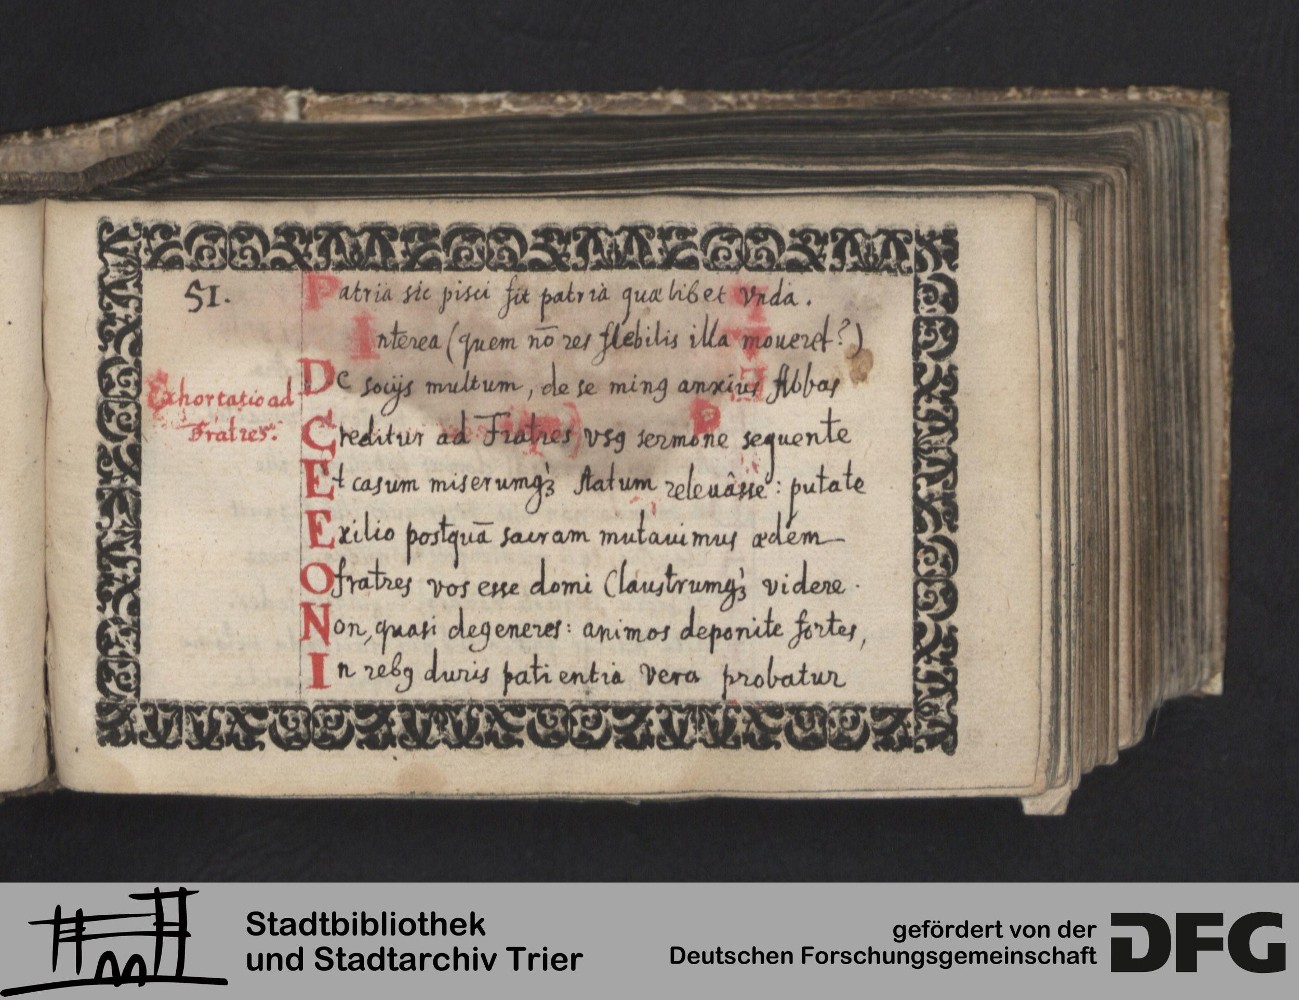 51.
Patria sic pisci fit patria quælibet vnda.
Interea (quem nō res flebilis illa moueret?)
De socijs multum, de se minꝯ anxius Abbas
Exhortatio ad
Fratres.
Creditur ad Fratres vsꝯ sermone sequente
Et casum miserumqꝫ statum releuâsse: putate
Exilio postquā sacram mutauimus ædem
O fratres vos esse domi Claustrumqꝫ videre.
Non, quasi degeneres: animos deponite fortes,
In rebꝯ duris patientia vera probatur
Stadtbibliothek
und Stadtarchiv Trier
gefördert von der
Deutschen Forschungsgemeinschaft
DFG